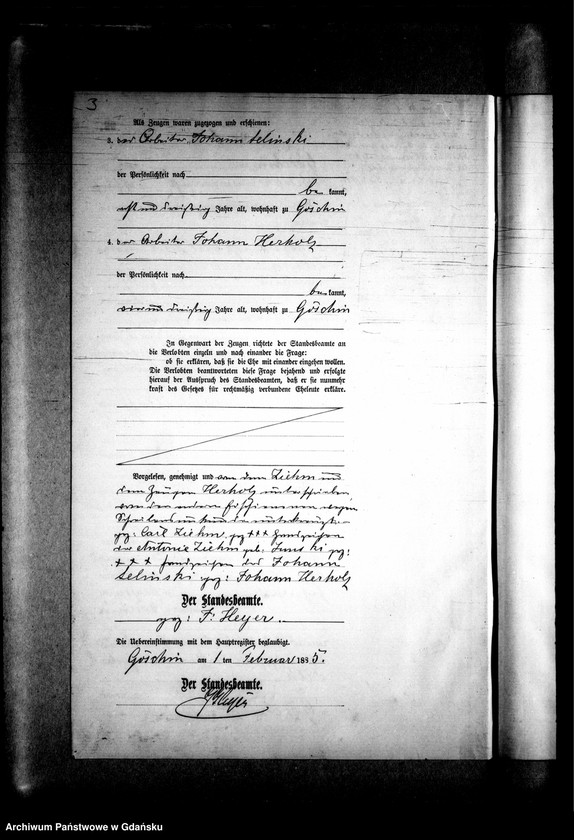 3
Als Zeugen waren zugezogen und erschienen:
3. der Arbeiter Johann Selinski
der Persönlichkeit nach
be kannt,
acht und dreißig Jahre alt, wohnhaft zu Göschin
4. der Arbeiter Johann Herholz
der Persönlichkeit nach
be kannt,
vier und dreißig Jahre alt, wohnhaft zu Göschin
In Gegenwart der Zeugen richtete der Standesbeamte an
die Verlobten einzeln und nach einander die Frage:
ob sie erklären, daß sie die Ehe mit einander eingehen wollen.
Die Verlobten beantworteten diese Frage bejahend und erfolgte
hierauf der Ausspruch des Standesbeamten, daß er sie nunmehr
kraft des Gesetzes für rechtmäßig verbundene Eheleute erkläre.
Vorgelesen, genehmigt und von dem Ziehm und
dem Zeugen Herholz unterschrieben,
von den anderen Erschienenen wegen
Schreibensunkunde unterkreuzt
gez: Carl Ziehm, gez +++ Handzeichen
der Antonie Ziehm geb: gez:
+ + + Handzeichen des Johann
Selinski gez: Johann Herholz
Der Standesbeamte.
gez: F. Heyer.
Die Uebereinstimmung mit dem Hauptregister beglaubigt.
Göschin am 1 ten Februar 1885.
Der Standesbeamte.
Heyer
Archiwum Państwowe w Gdańsku